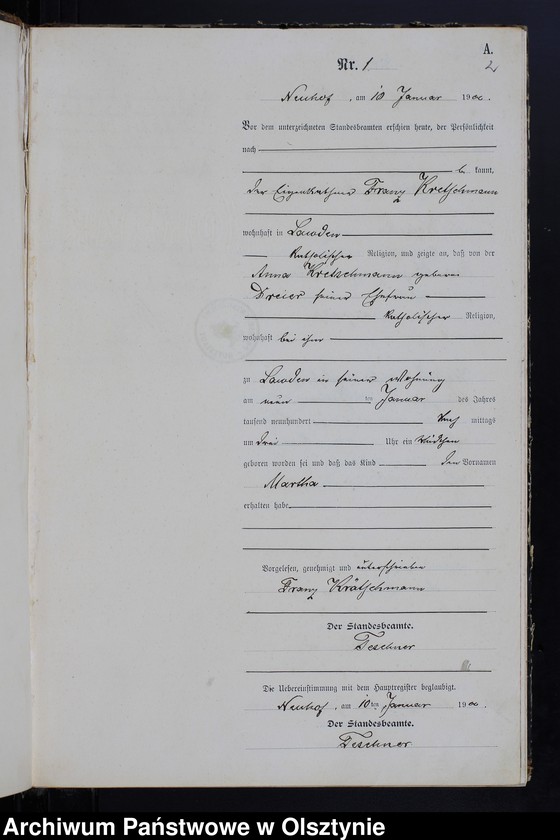 A.
2
Nr. 1
Neuhof, am 10 Januar 1900.
Vor dem unterzeichneten Standesbeamten erschien heute, der Persönlichkeit
nach
be kannt,
der Eigenkäthner Franz Kretschmann
wohnhaft in Lawden
katholischer Religion, und zeigte an, daß von der
Anna Kretschmann geborene
Dreier seiner Ehefrau
katholischer Religion,
wohnhaft bei ihm
zu Lawden in seiner Wohnung
am neun ten Januar des Jahres
tausend neunhundert Nach mittags
um drei Uhr ein Mädchen
geboren worden sei und daß das Kind den Vornamen
Martha
erhalten habe
Vorgelesen, genehmigt und unterschrieben
Franz Krätschmann
Der Standesbeamte.
Teschner
Die Uebereinstimmung mit dem Hauptregister beglaubigt.
Neuhof, am 10ten Januar 1900.
Der Standesbeamte.
Teschner
Archiwum Państwowe w Olsztynie